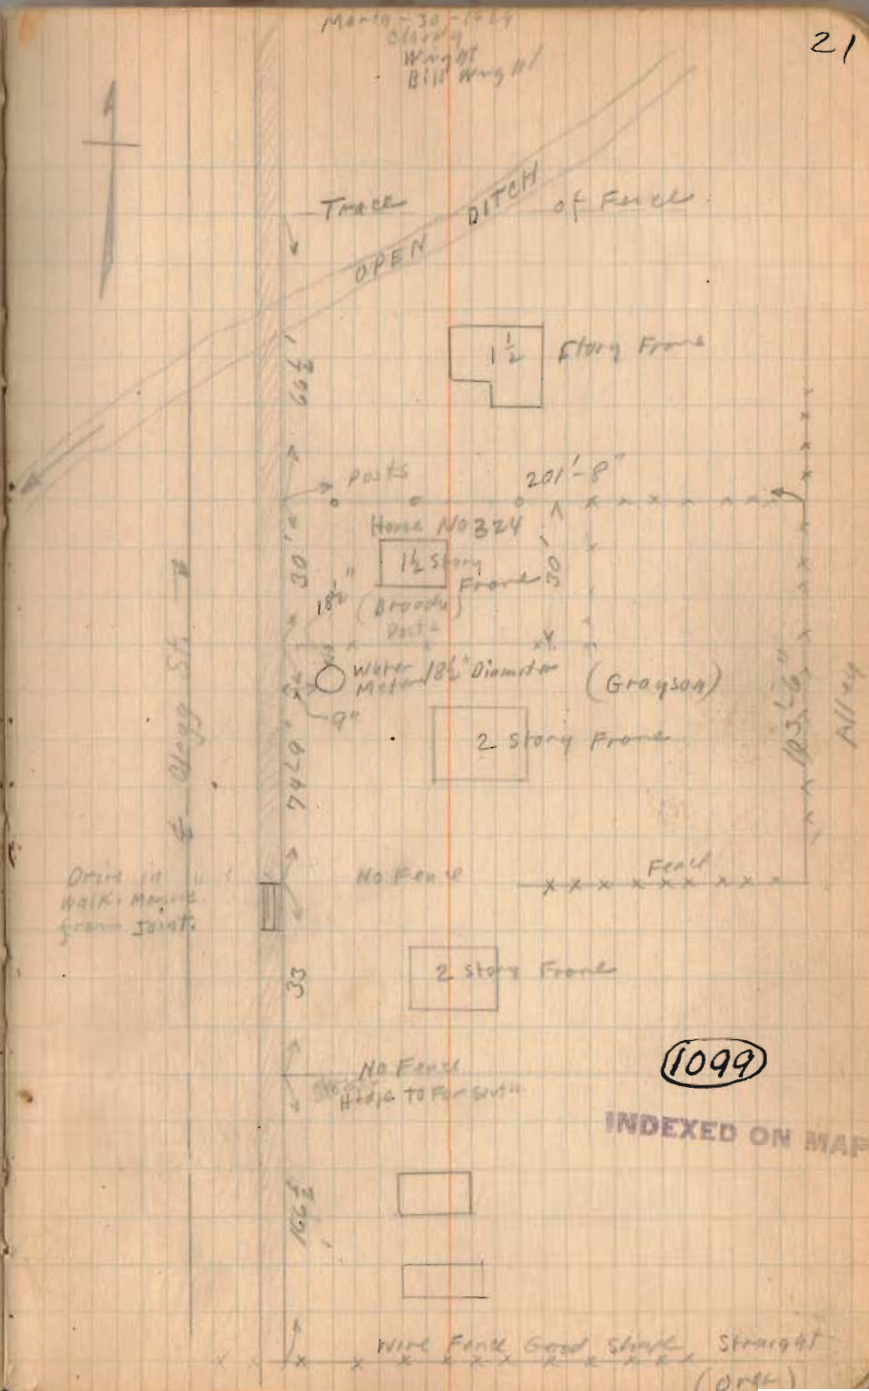 21
March - 30 -
Wright
Bill Wright
Trace of Fence
OPEN DITCH
1 1/2 Story Frame
66 1/2'
Posts
201'-8"
House No 324
30'
1 1/2 Story Frame
30'
18 1/2"
(Broady)
Post
Water Meter 18 1/2" Diameter
(Grayson)
9"
2 Story Frame
74'-9"
103'-6"
Alley
℄ Clegg St.
No Fence
Fence
Drive in
Walk. Measure
from Joint.
2 Story Frame
33
No Fence
Hedge To Far South
1099
INDEXED ON MAP
Wire Fence Good Shape Straight